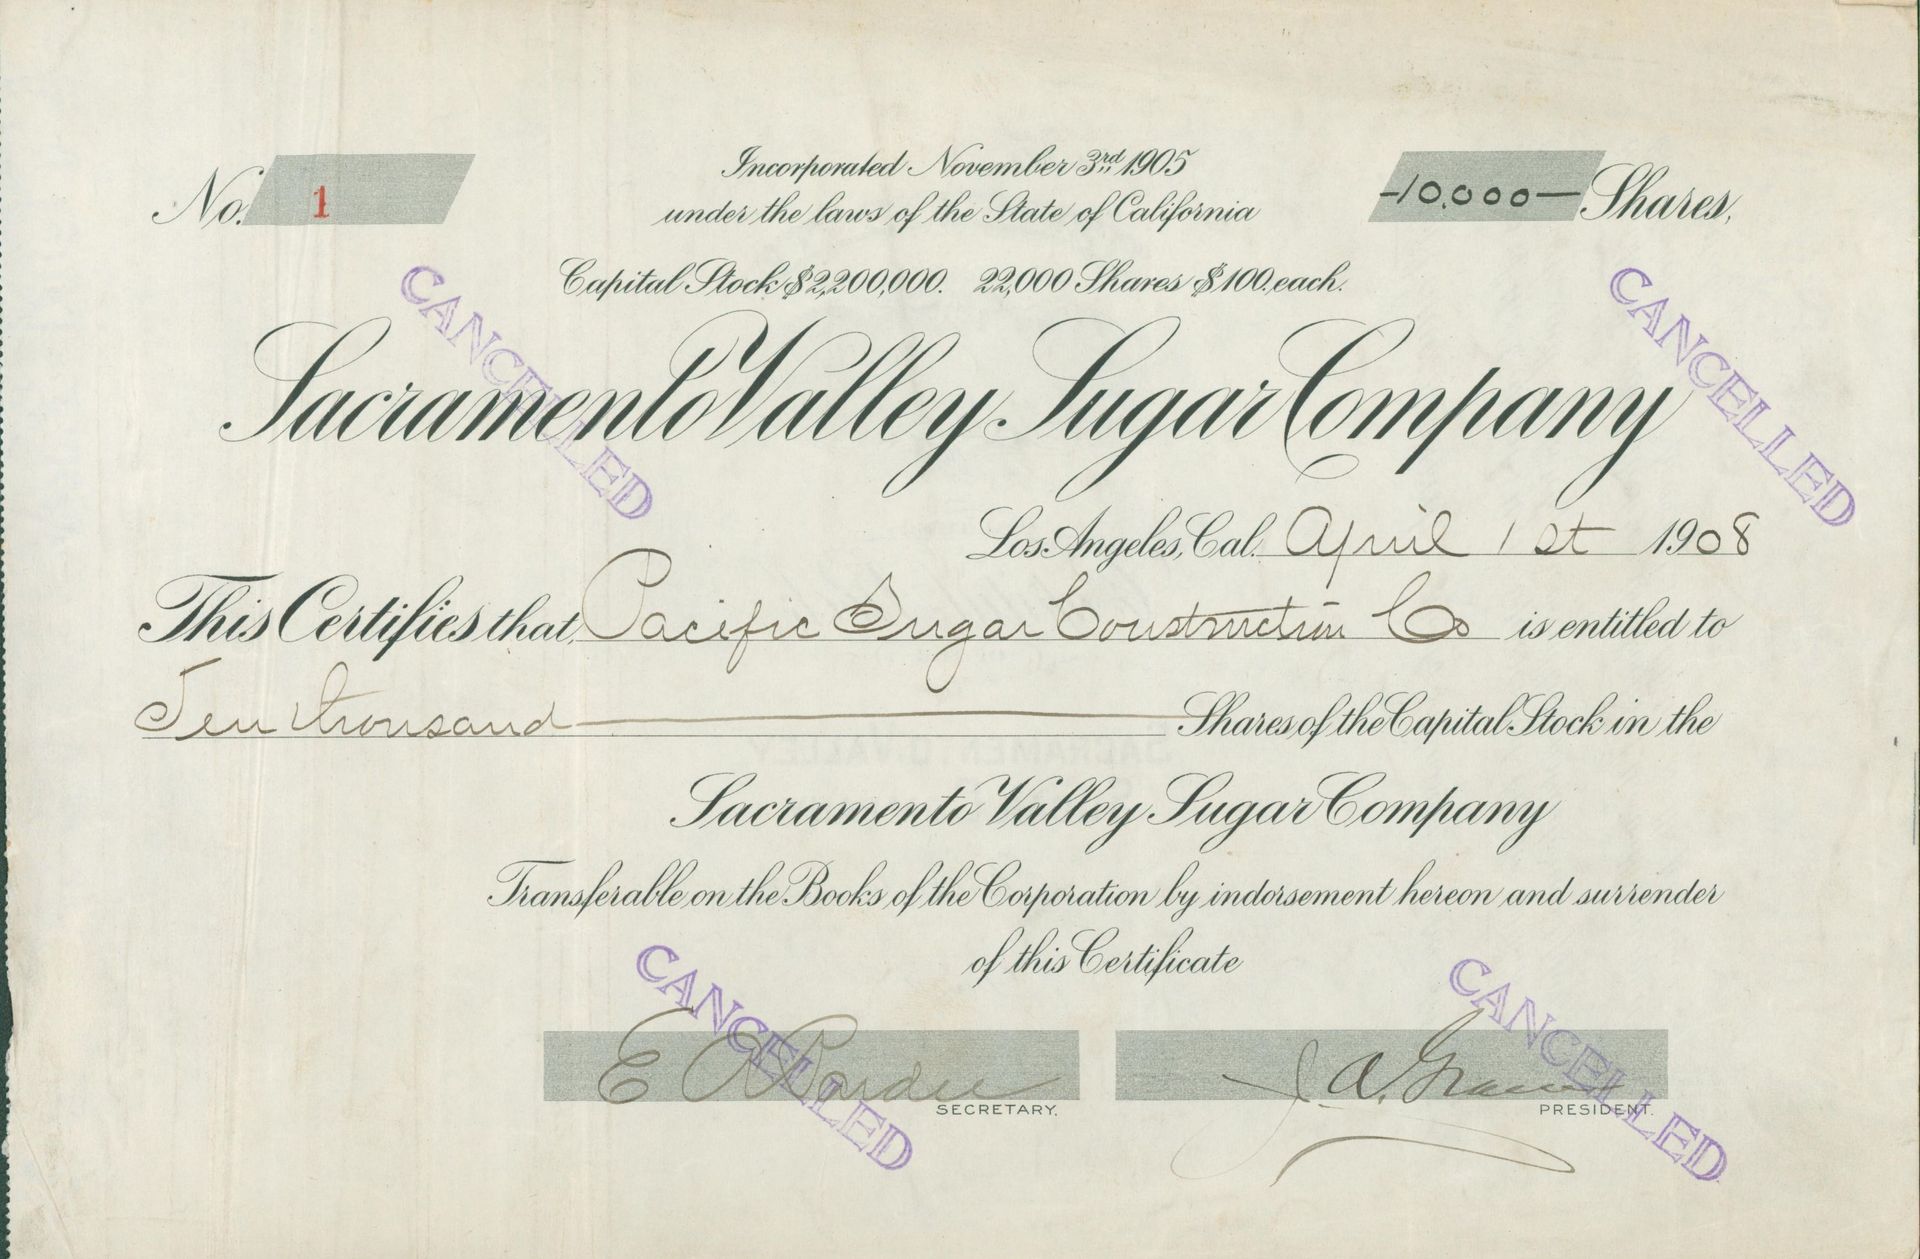 No. 1
Incorporated November 3rd 1905
-10,000- Shares,
under the laws of the State of California
Capital Stock $2,200,000. 22,000 Shares $100 each.
CANCELLED
CANCELLED
Sacramento Valley Sugar Company
Los Angeles, Cal. April 1st 1908
This Certifies that, Pacific Sugar Construction Co is entitled to
Ten thousand Shares of the Capital Stock in the
Sacramento Valley Sugar Company
Transferable on the Books of the Corporation by indorsement hereon and surrender
of this Certificate
CANCELLED
CANCELLED
E Pardee
SECRETARY.
J. A. Graves
PRESIDENT.